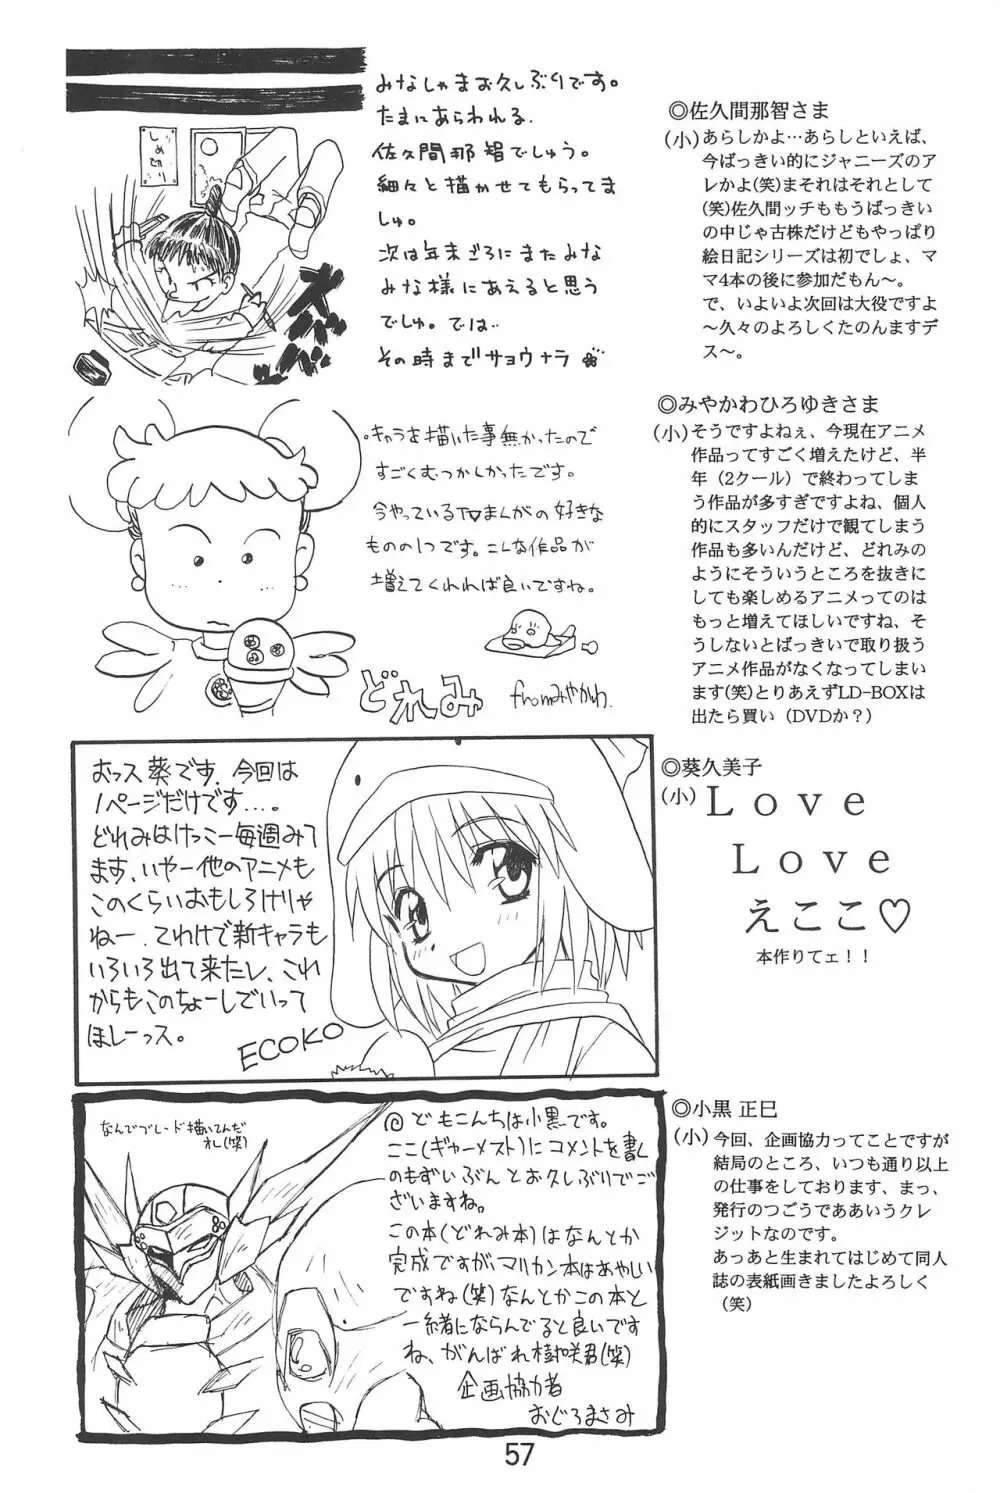 しめ切り
みなしゃまお久しぶりです。
たまにあらわれる、
佐久間那智でしゅう。
細々と描かせてもらってま
しゅ。
次は年末ごろにまたみな
みな様にあえると思う
でしゅ。では…
その時までサヨウナラ
◎佐久間那智さま
(小)あらしかよ…あらしといえば、
今ばっきい的にジャニーズのア
レかよ(笑)まそれはそれとして
(笑)佐久間ッチももうばっきい
の中じゃ古株だけどもやっぱり
絵日記シリーズは初でしょ、マ
マ4本の後に参加だもん〜。
で、いよいよ次回は大役ですよ
〜久々のよろしくたのんますデ
ス〜。
。キャラを描いた事無かったので
すごくむつかしかったです。
今やっているTVまんがの好きな
ものの1つです。こんな作品が
増えてくれれば良いですね。
どれみ
fromみやかわ.
◎みやかわひろゆきさま
(小)そうですよねぇ、今現在アニメ
作品ってすごく増えたけど、半
年（2クール）で終わってしま
う作品が多すぎですよね、個人
的にスタッフだけで観てしまう
作品も多いんだけど、どれみの
ようにそういうところを抜きに
しても楽しめるアニメってのは
もっと増えてほしいですね、そ
うしないとばっきいで取り扱う
アニメ作品がなくなってしまい
ます(笑)とりあえずLD-BOXは
出たら買い（DVDか？）
おっス葵です。今回は
1ページだけです…。
どれみはけっこー毎週みて
ます、いやー他のアニメも
このくらいおもしろけりゃ
ねー、てわけで新キャラも
いろいろ出て来たし、これ
からもこのちょーしでいって
ほしーっス。
ECOKO
◎葵久美子
(小)Ｌｏｖｅ
Ｌｏｖｅ
えここ♡
本作りてェ！！
なんでブレード描いてんだ
オレ(笑)
@どもこんちは小黒です。
ここ(ギャーメスト)にコメントを書く
のもずいぶんとお久しぶりでご
ざいますね。
この本(どれみ本)はなんとか
完成ですがマルカン本はあやしい
ですね(笑)なんとかこの本と
一緒にならんでると良いです
ね、がんばれ樹咲君(笑)
企画協力者
おぐろまさみ
◎小黒 正巳
(小)今回、企画協力ってことですが
結局のところ、いつも通り以上
の仕事をしております、まっ、
発行のつごうでああいうクレ
ジットなのです。
あっあと生まれてはじめて同人
誌の表紙画きましたよろしく
（笑）
57